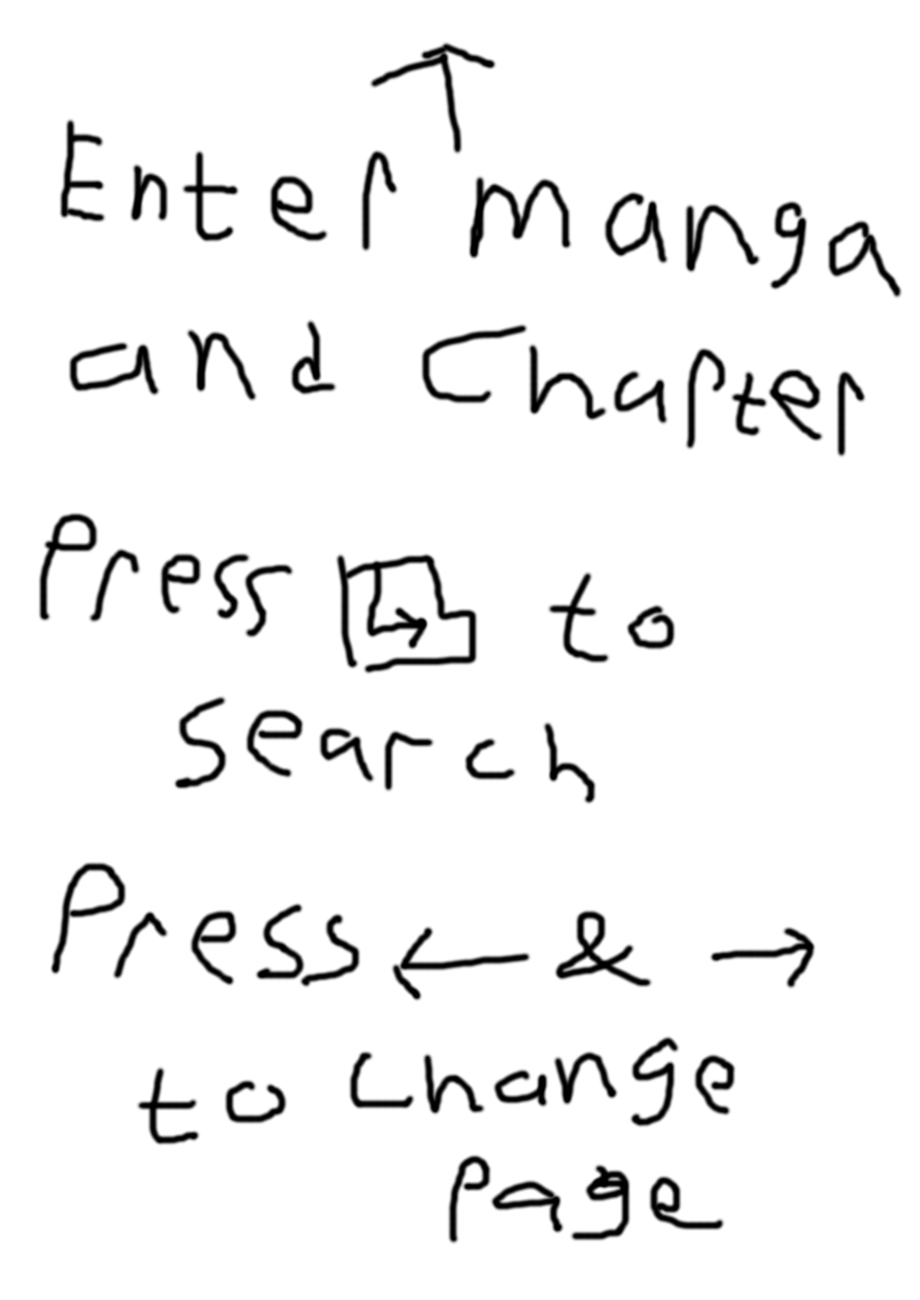 Enter manga
and Chapter
Press to
search
Press ← & →
to change
page